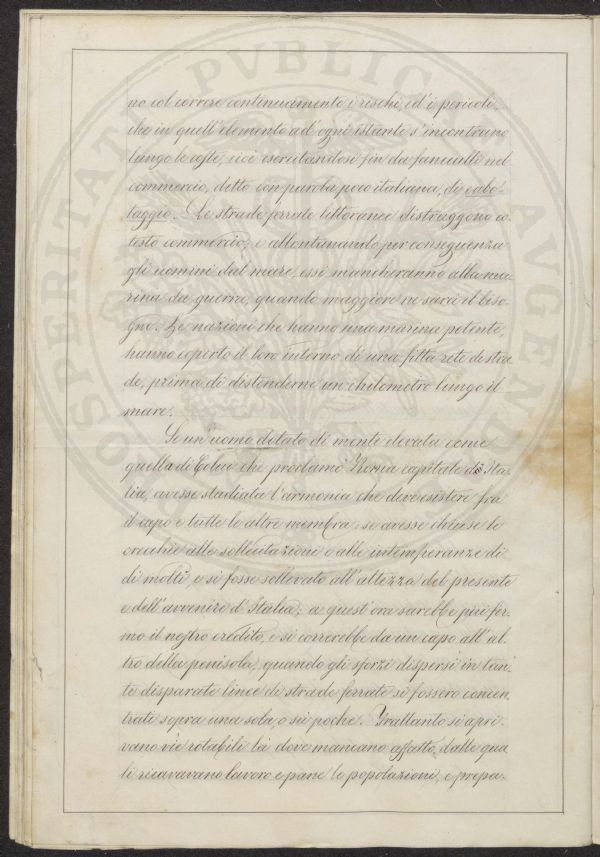 no col correre continuamente i rischi, ed'i pericoli,
che in quell'elemento ad'ogni istante s'incontrano
lungo le coste, cioè esercitandosi fin da fanciulli nel
commercio, detto con parola poco italiana, di cabo-
taggio. Le strade ferrate littoranee distruggono co
testo commercio, e allontanando per conseguenza
gli uomini dal mare, essi mancheranno alla ma-
rina da guerra, quando maggiore ne sarà il biso-
gno. Le nazioni che hanno una marina potente,
hanno coperto il loro interno di una fitta rete di stra
de, prima di distenderne un chilometro lungo il
mare.
Se un'uomo dotato di mente elevata come
quella di Colui che proclamò Roma capitale di Ita-
lia, avesse studiata l'armonia che deve esistere fra
il capo e tutte le altre membra: se avesse chiuse le
orecchie alle sollecitazioni e alle intemperanze di
di molti, e si fosse sollevato all'altezza del presente
e dell'avvenire d'Italia; a quest'ora sarebbe più fer-
mo il nostro credito, e si correrebbe da un capo all'al
tro della penisola, quando gli sforzi dispersi in tan-
te disparate linee di strade ferrate si fossero concen
trati sopra una sola, o su poche. Frattanto si apri-
vano vie rotabili là dove mancano affatto, dalle qua
li ricavavano lavoro e pane le popolazioni, e prepa-
PROSPERITATI PVBLICAE AVGENDAE